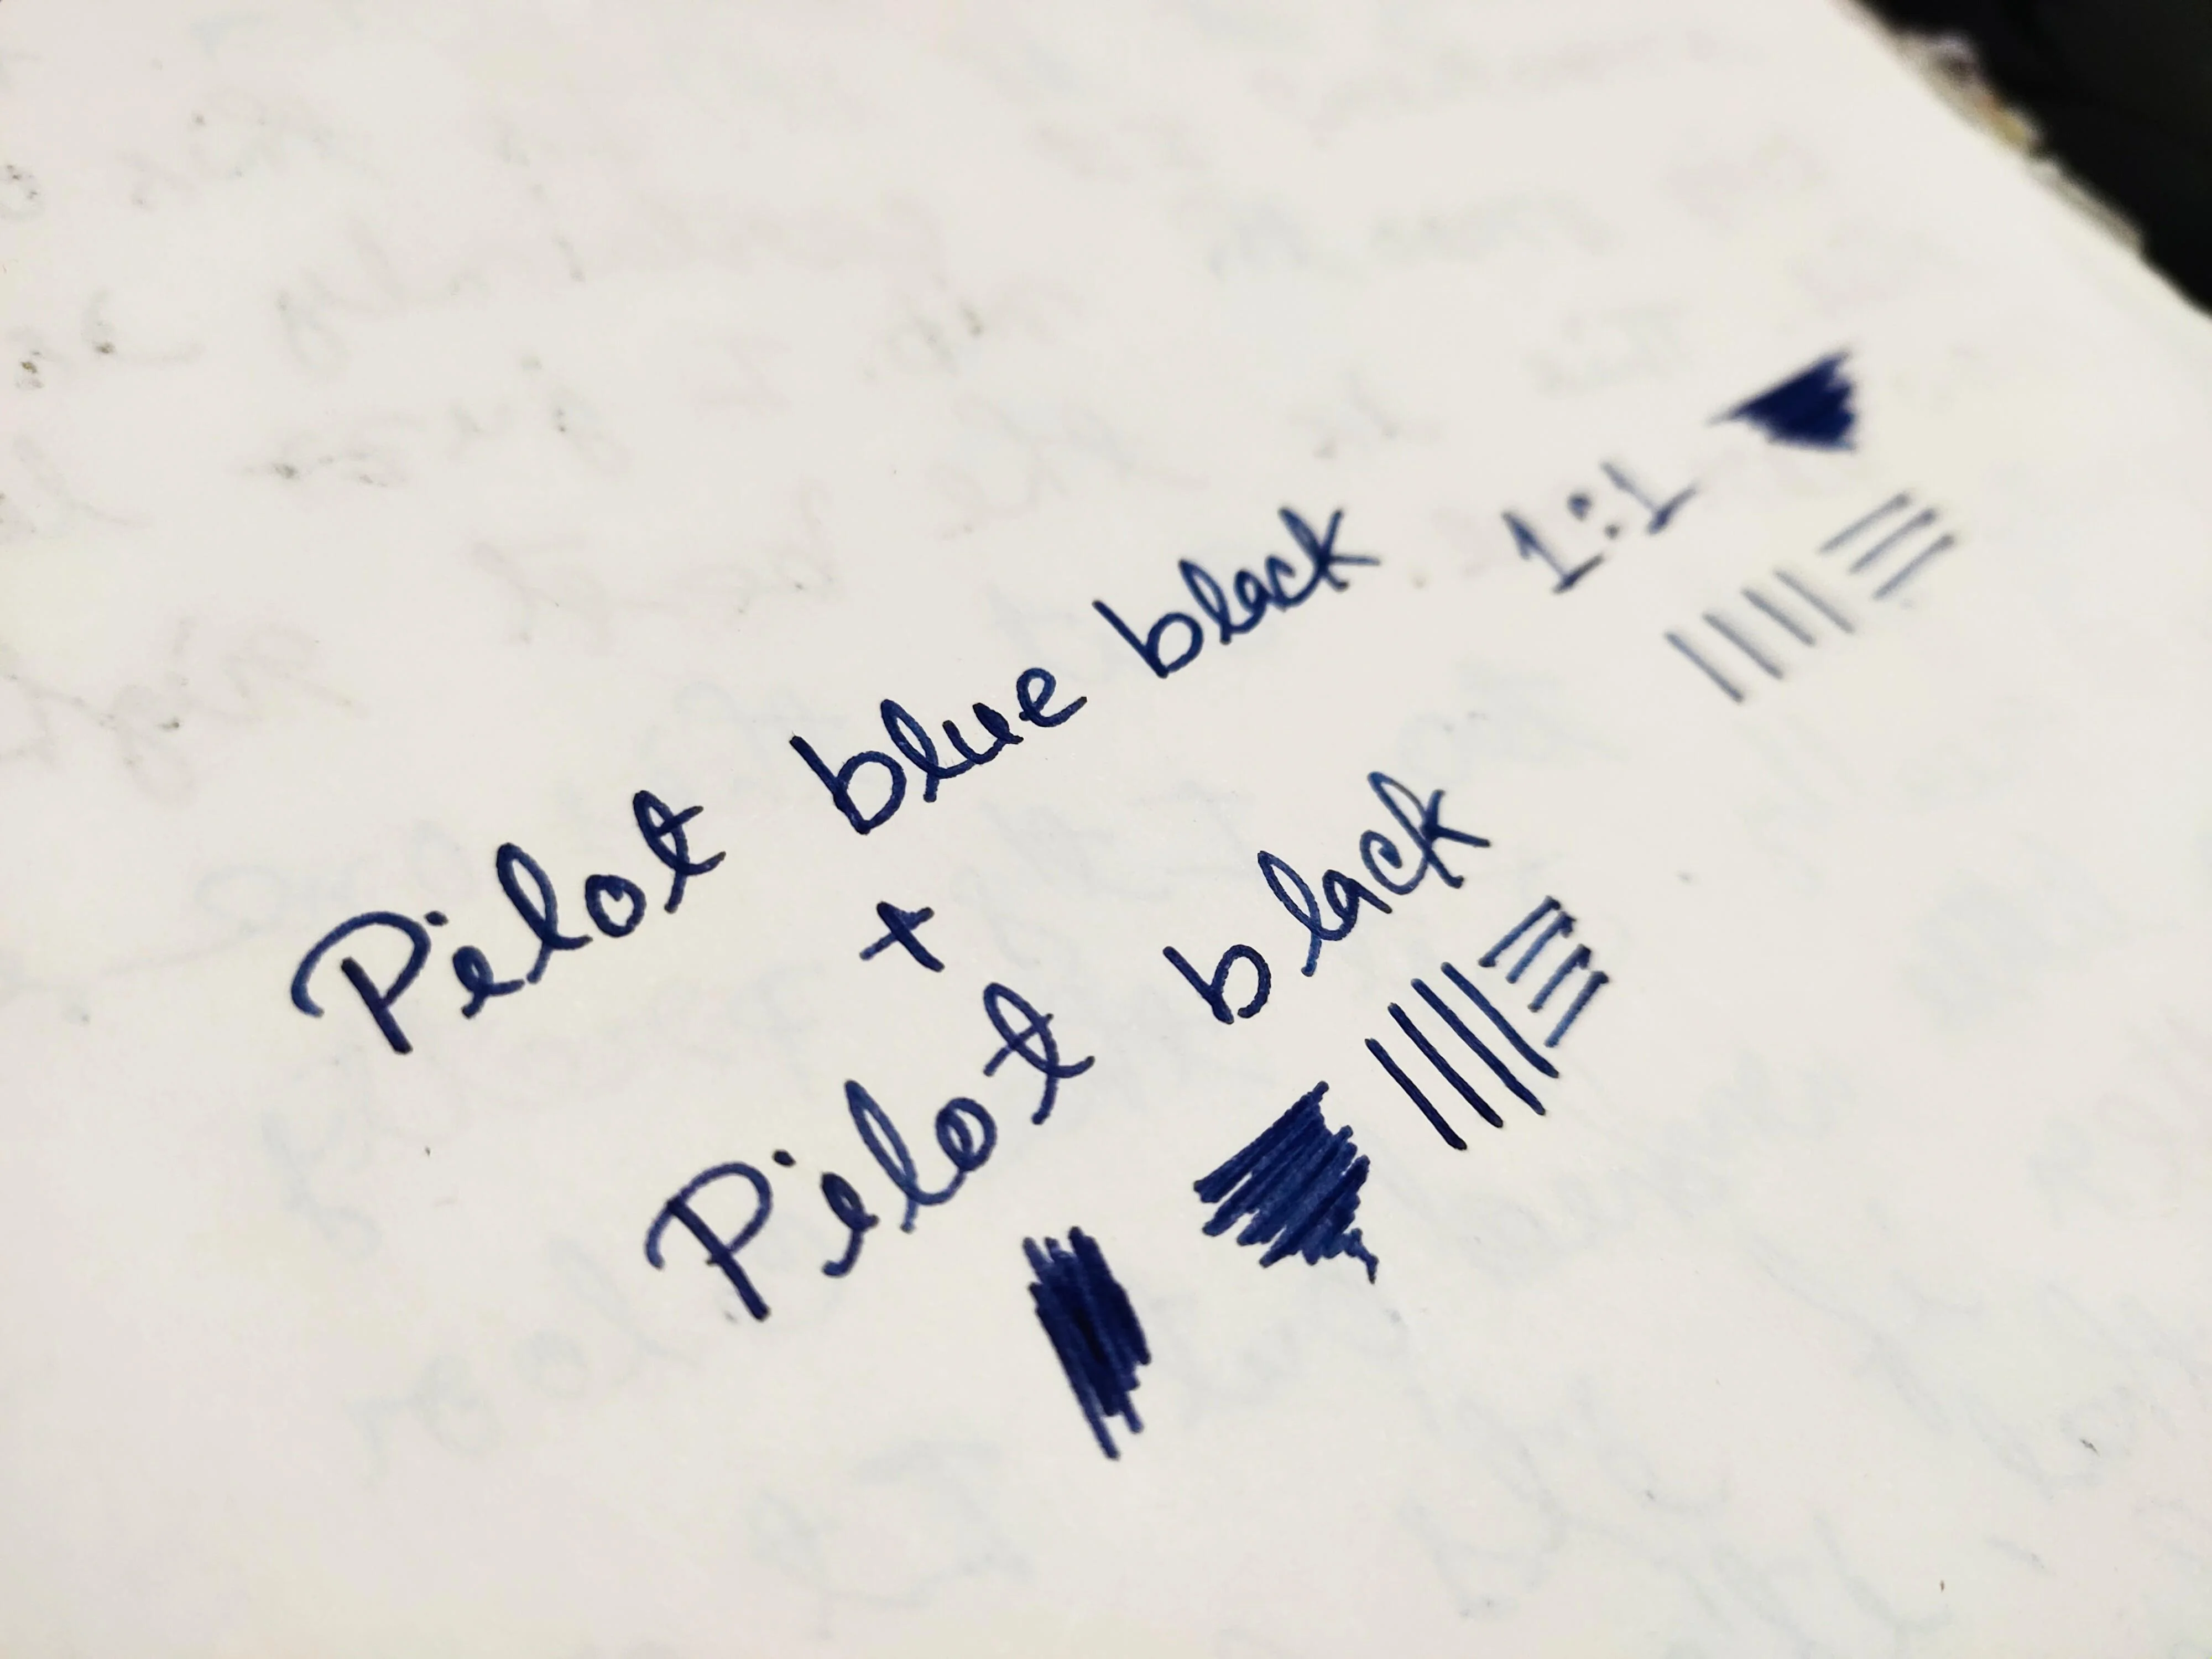 Pilot blue black 1:1
+
Pilot black